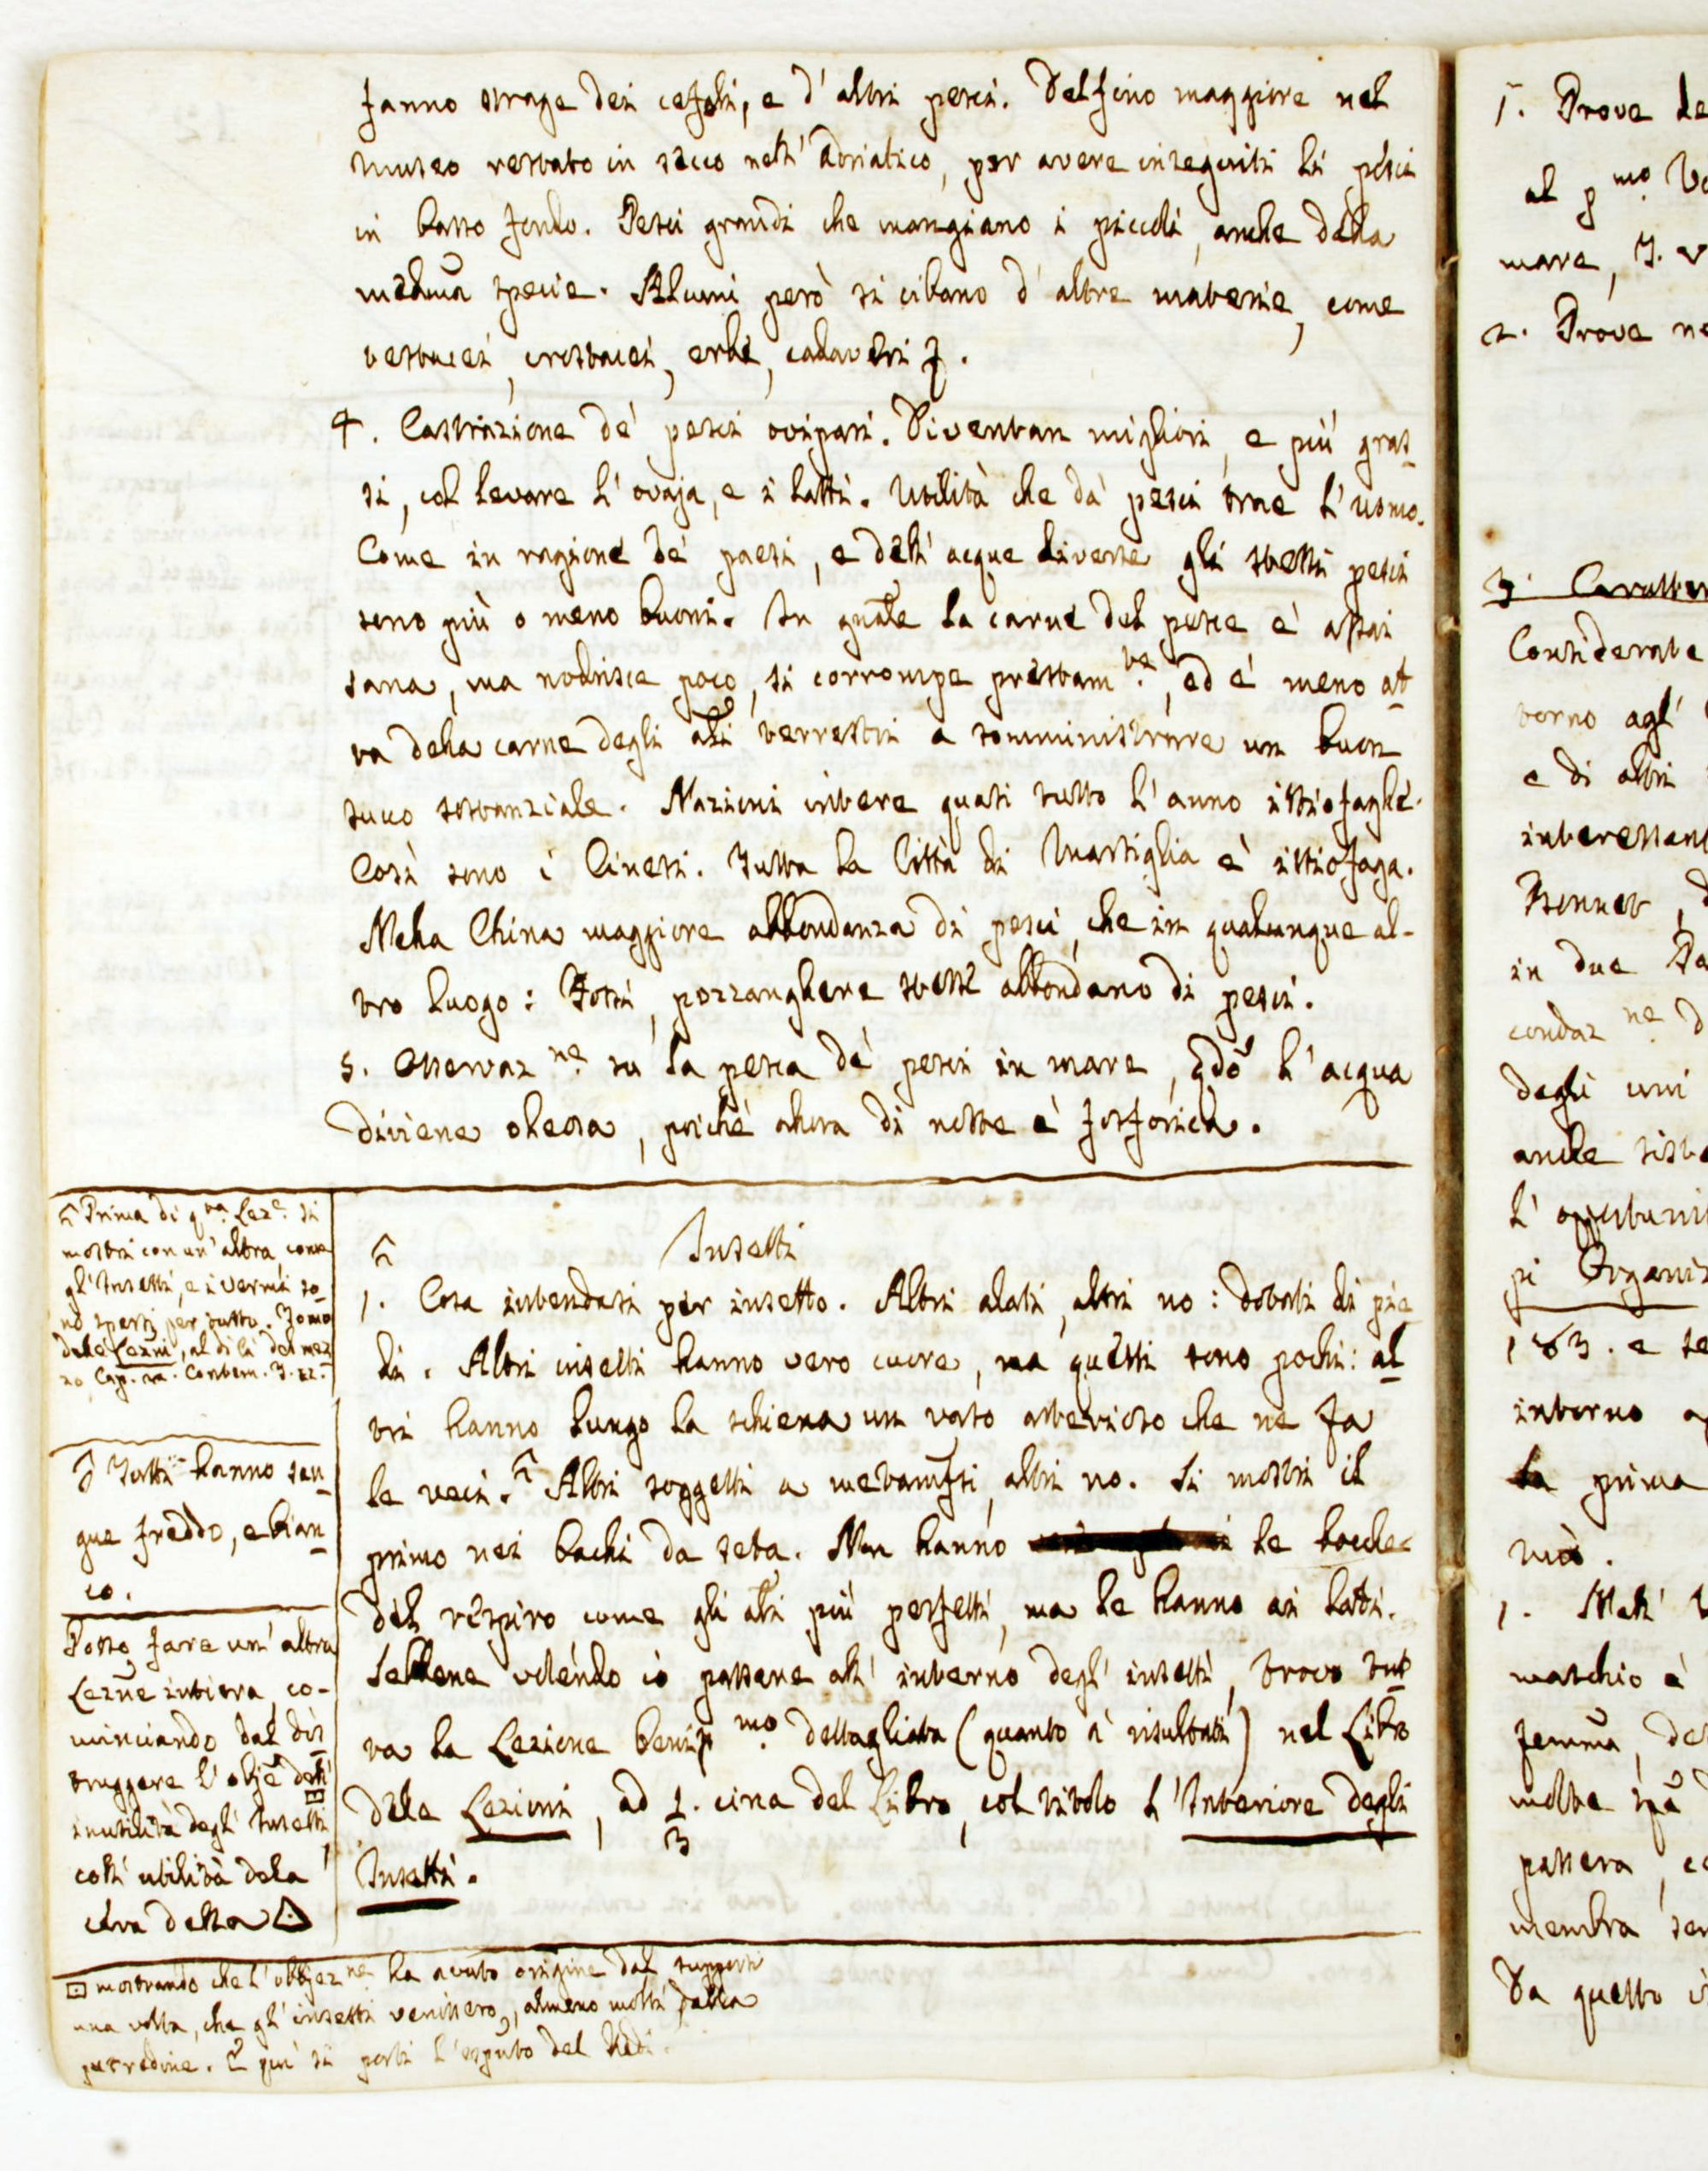 fanno strage dei cefali, e d'altri pesci. Delfino maggiore nel
museo restato in secco nell'Adriatico, per avere inseguiti li pesci
in basso fondo. Pesci grandi che mangiano i piccoli, anche della
medma specie. Alcuni però si cibano d'altre materie, come
testacei, crostacei, erbe, cadaveri
4. Castrazione de' pesci ovipari. Diventan migliori, e più gras
si, col levare l'ovaja, e i latti. Utilità che da' pesci trae l'uomo.
Come in ragione de' paesi, e dell'acque diverse gli stessi pesci
sono più o meno buoni. In gnāle la carne del pesce è assai
sana, ma nodrisce poco, si corrompe prestam.te, ed è meno at
ta della carne degli āli terrestri a somministrare un buon
succo sostanziale. Nazioni intere quasi tutto l'anno ittiofaghe.
Così sono i Cinesi. Tutta la Città di Marsiglia è ittiofaga.
Nella China maggiore abbondanza di pesci, che in qualunque al-
tro luogo: Fossi, pozzanghere stesse abbondano di pesci.
5. Osservaz.ne su la pesca de' pesci in mare, qdō l'acqua
diviene oleosa, poiché allora di notte è fosforica.
Prima di q.ta Lez.e si
mostri con un'altra, come
gl'Insetti, e i vermi so
no sparsi per tutto. Tomo
delle Lezni, al di là del mez
zo, Cap.
Tutti hanno san
gue freddo, e bian
co.
Posso fare un'altra
Lezne intiera, co-
minciando dal dis
truggere l'obje dell'
inutilità degl'Insetti
coll'utilità della
cera della
Insetti
1. Cosa intendasi per insetto. Altri alati, altri no: dotati di pie
di. Altri insetti hanno vero cuore, ma questi sono pochi: al
tri hanno lungo la schiena un vaso arterioso che ne fa
le veci. Altri soggetti a metamfsi, altri no. Si mostri il
primo nei bachi da seta. Non hanno le bocche
del respiro come gli āli più perfetti, ma le hanno ai lati.
Sebbene volendo io passare all'interno degl'insetti, trovo tut
ta la Lezione beniss.mo dettagliata (quanto a' risultati) nel Libro
delle Lezioni, ad 1/3. circa del Libro, col titolo l'Interiore degli
Insetti.
mostrando che l'obbjez.ne ha avuto origine dal supporsi
una volta, che gl'insetti venissero, almeno molti dalla
putredine. E qui si porti l' del Redi.
1. Prove
al p.mo
mare,
2. Prove
3.
Considerate
torno agl'
e di altri
Bonnet,
in due
degli uni
anche
183. e
interno
la prima
1. Nell'
maschio è
molte
passera,
membra
Da quello